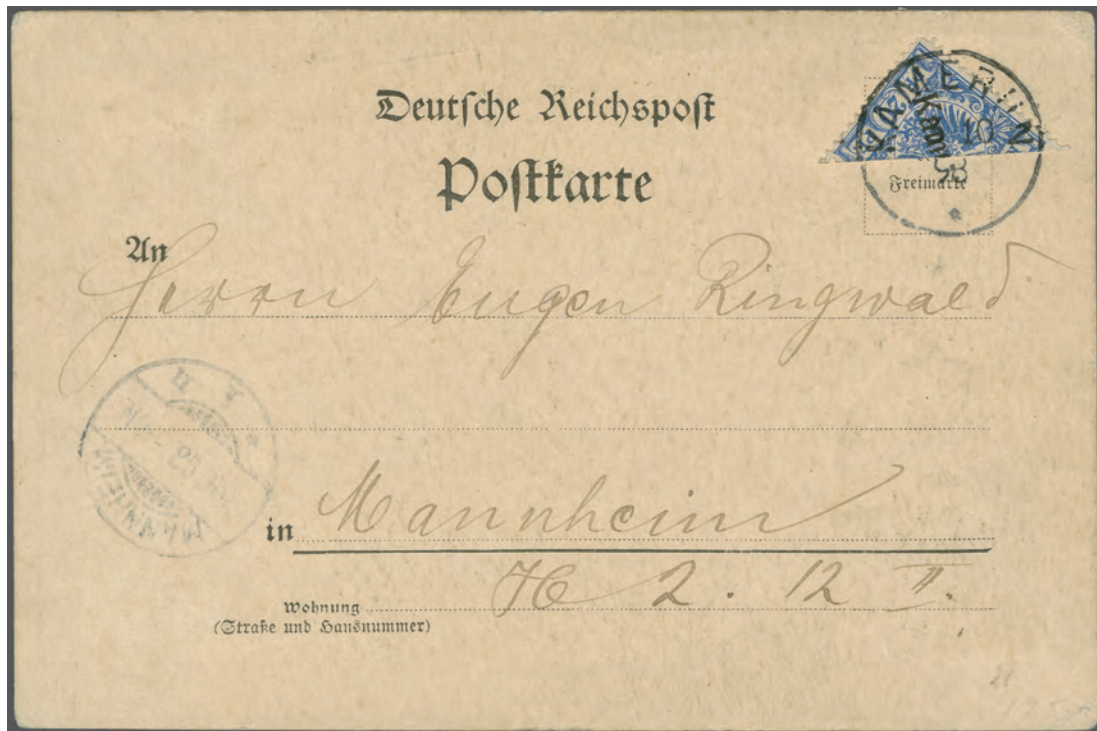 Deutsche Reichspost
Postkarte
KAMERUN
10
98
Freimarke
An
Herrn Eugen Ringwald
MANNHEIM
in Mannheim
H 2. 12 II.
Wohnung
(Straße und Hausnummer)